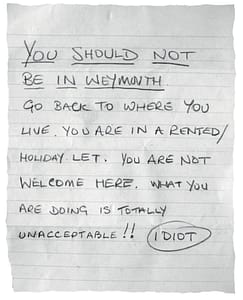 YOU SHOULD NOT
BE IN WEYMOUTH
GO BACK TO WHERE YOU
LIVE. YOU ARE IN A RENTED/
HOLIDAY LET. YOU ARE NOT
WELCOME HERE. WHAT YOU
ARE DOING IS TOTALLY
UNACCEPTABLE!! IDIOT